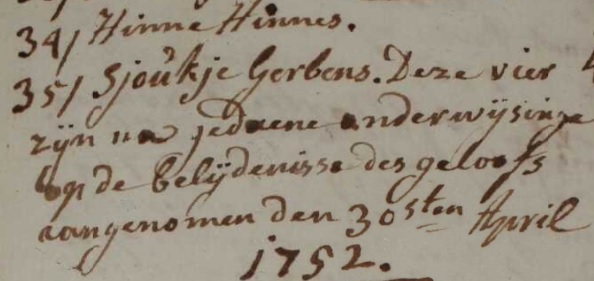 34/ Hinne Hinnes.
35/ Sjoukje Gerbens. Deze vier
zyn na jedaene onderwysinge
op de belydenisse des geloofs
aangenomen den 30sten April
1752.